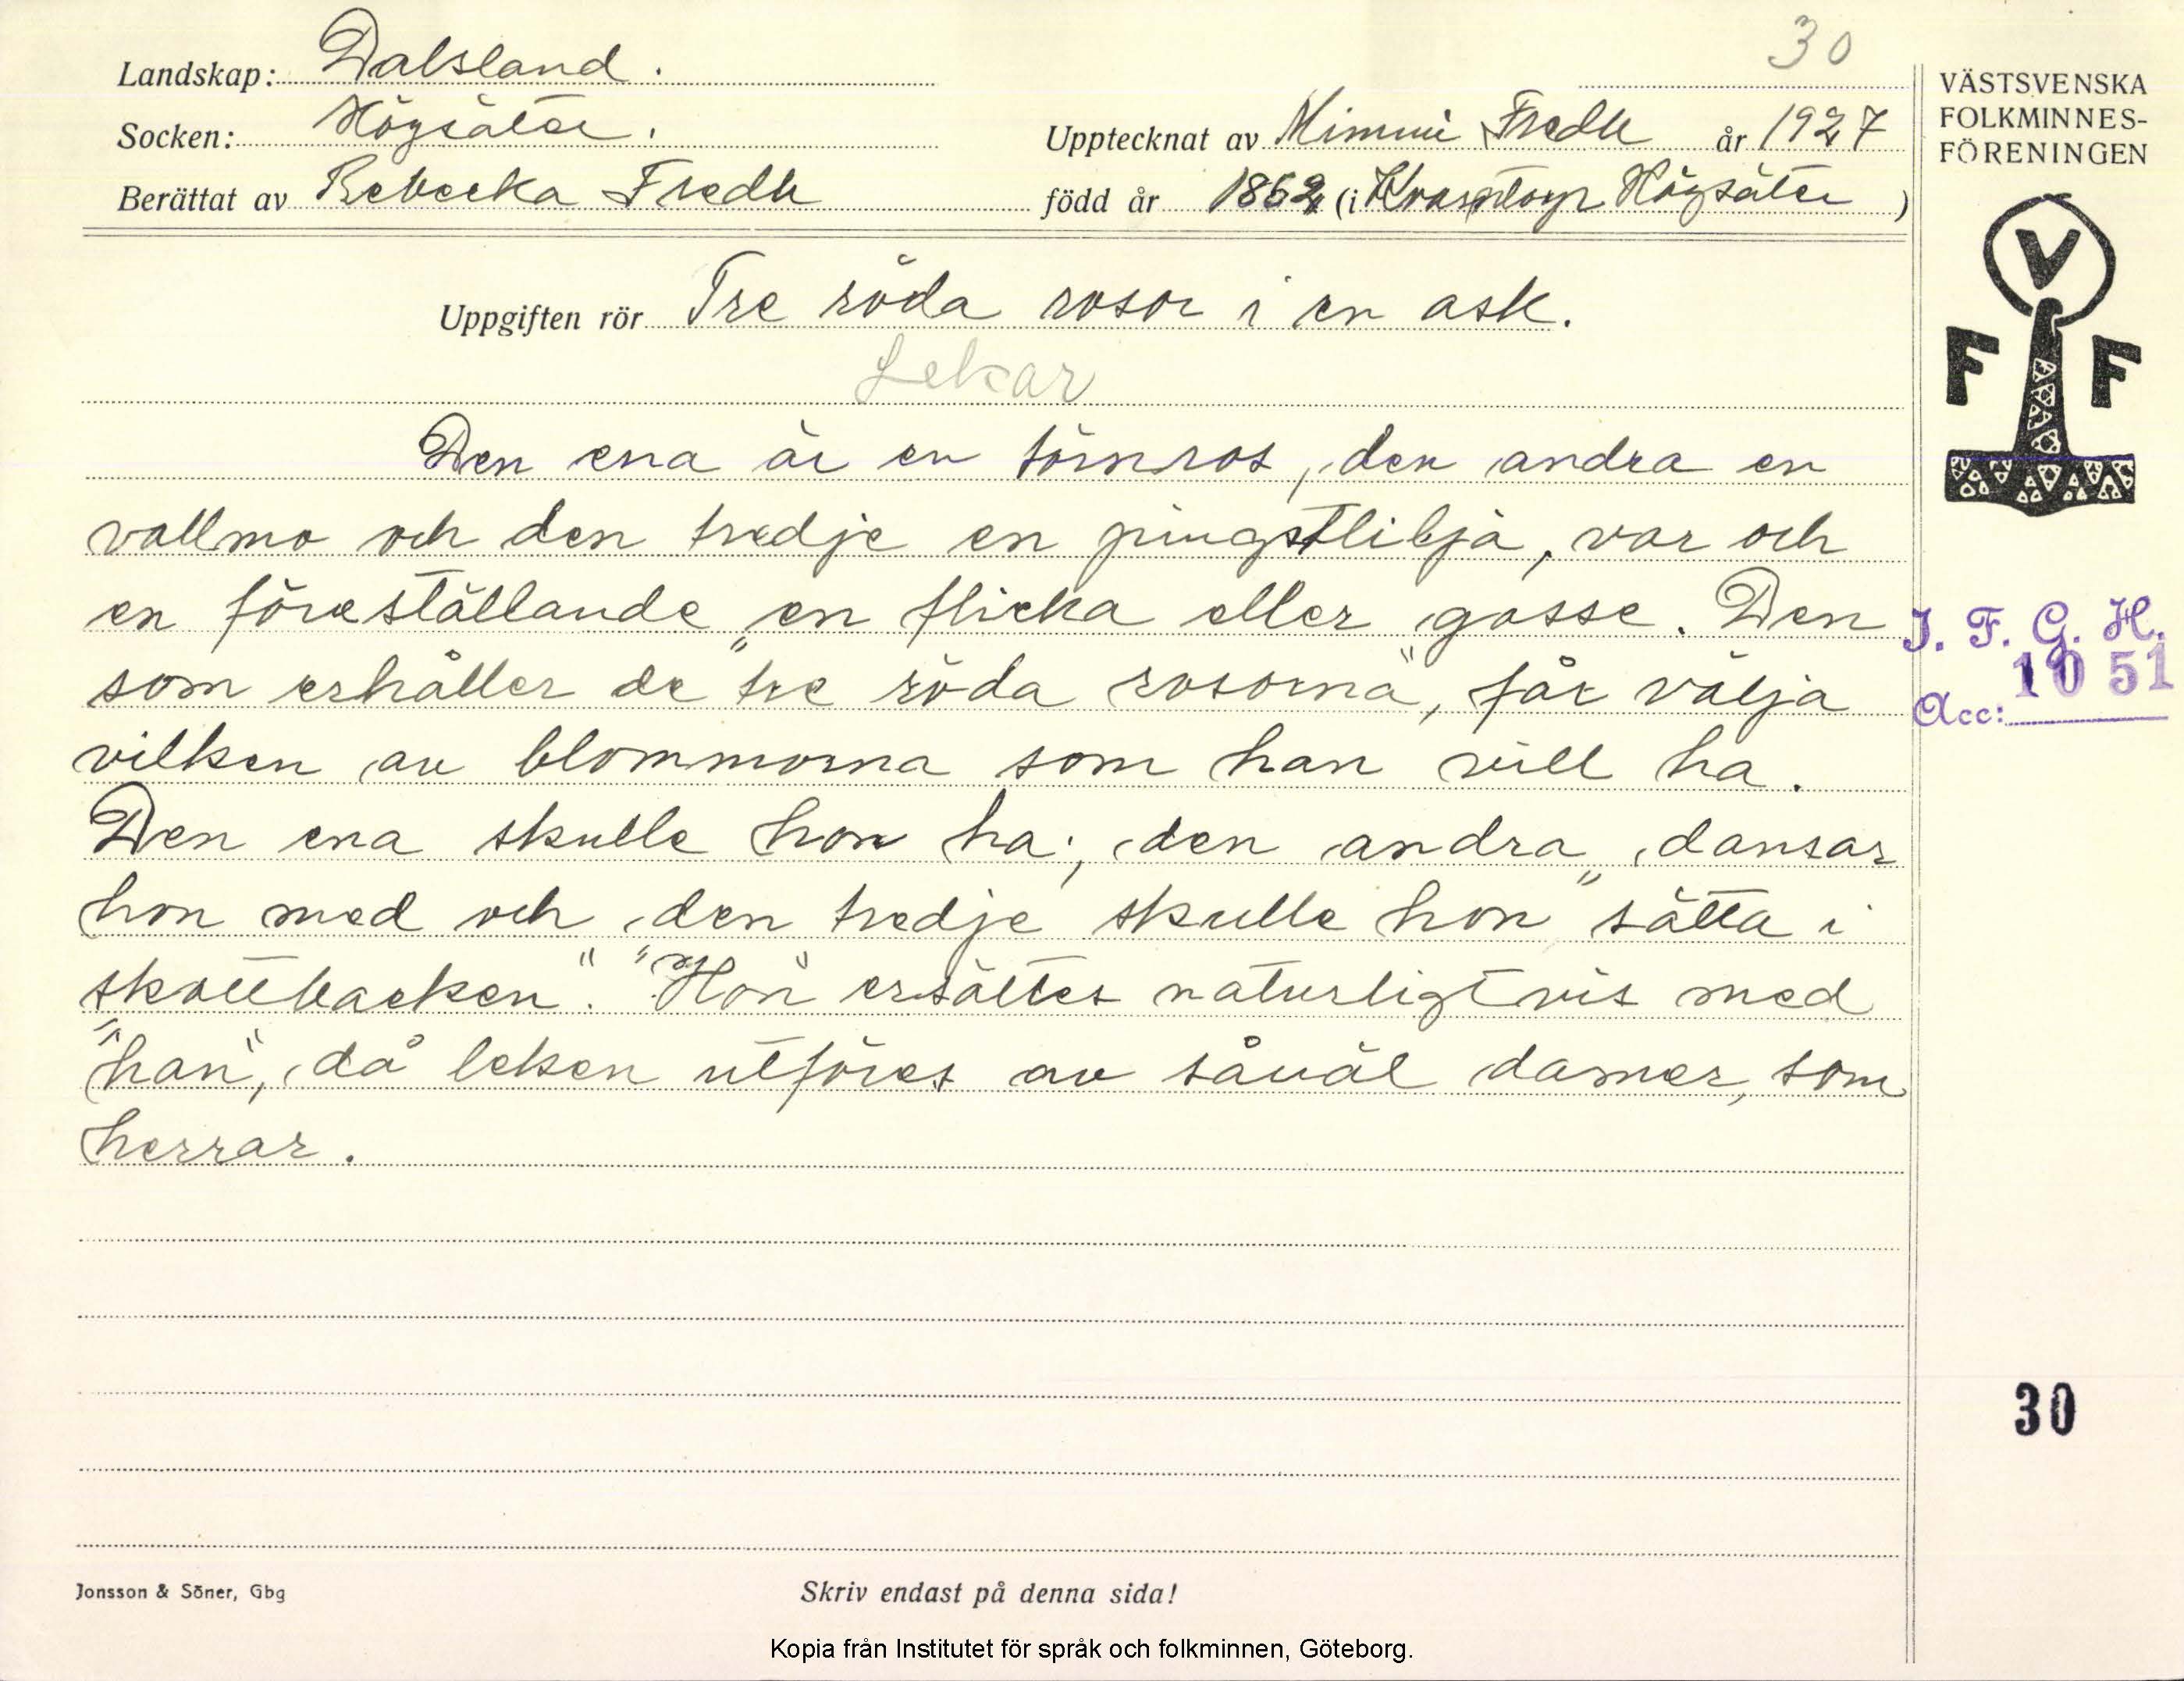 30
Landskap: Dalsland.
Socken: Högsäter.
Upptecknat av Mimmi Fredh år 1927
Berättat av Rebecka Fredh
född år 1862 (i Högsäter)
VÄSTSVENSKA
FOLKMINNES-
FÖRENINGEN
V
F F
Uppgiften rör Tre röda rosor i en ask.
Lekar
Den ena är en törnros, den andra en
vallmo och den tredje en pingstlilja, var och
en föreställande en flicka eller gosse. Den
som erhåller de "tre röda rosorna", får välja
vilken av blommorna som han vill ha.
Den ena skulle hon ha; den andra dansar
hon med och den tredje skulle hon "sätta i
skottbacken". "Hon" ersättes naturligtvis med
"han", då leken utföres av såväl damer, som
herrar.
I. F. G. H.
Acc: 1051
30
Jonsson & Söner, Gbg
Skriv endast på denna sida!
Kopia från Institutet för språk och folkminnen, Göteborg.